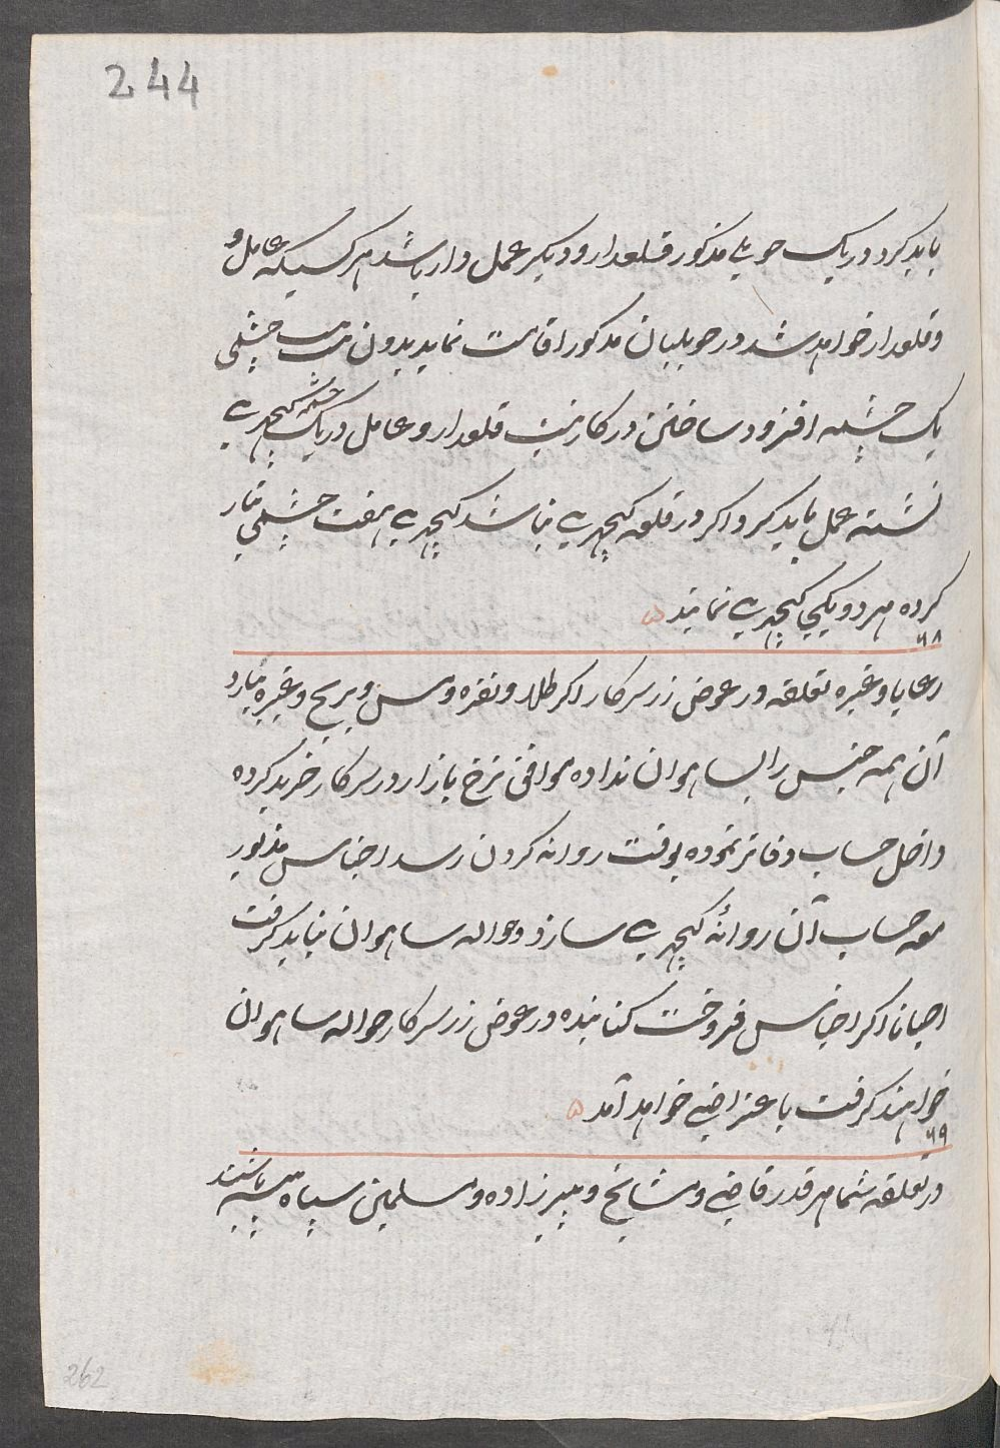 244
باید کرد و در یک حویلی مذکور قلعدار و دیگر عمل دار باشد هر کسیکه عامل و
و قلعدار خواهد شد در حویلیان مذکور اقامت نماید بدون هشت چشمی
یک چشمه افزود ساختن درکار نیست قلعدار و عامل در یک چشمه کچهری
نشسته عمل باید کرد اگر در قلعه کچهری نباشد کچهری هفت چشمی تیار
کرده هر دو یکجی کچهری نمایند ۵
۶۸
رعایا و غیره تعلقه در عوض زر سرکار اگر طلا و نقره و مس و برنج و غیره بیارد
آن همه جنس را بساهوان نداده موافق نرخ بازار در سرکار خرید کرده
داخل حساب دفاتر نموده بوقت روانه کردن رسد اجناس مذکور
معه حساب آن روانهٔ کچهری سازد و حواله ساهوان نباید گرفت
احیانا اگر اجناس فروخت کنانیده در عوض زر سرکار حواله ساهوان
خواهند گرفت باعتراضی خواهد آمد ۵
۶۹
در تعلقه شما هر قدر قاضی و مشایخ و پیرزاده و مسلمین سپاه پیشه باشند
262